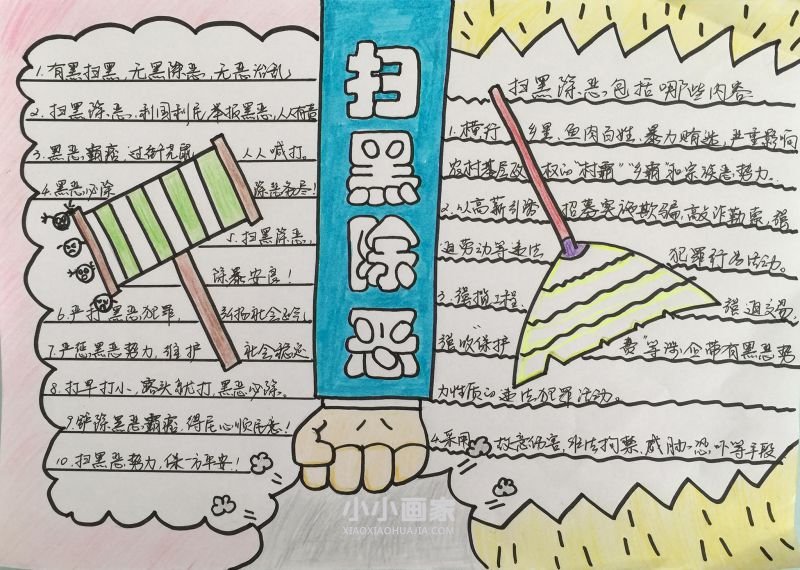 扫黑除恶
1.有黑扫黑,无黑除恶,无恶治乱
2.扫黑除恶,利国利民,举报黑恶,人人有责
3.黑恶霸痞,过街老鼠 人人喊打。
4.黑恶必除 除恶务尽!
5.扫黑除恶,
除暴安良!
6.严打黑恶犯罪 弘扬社会正气
7.严惩黑恶势力,维护 社会稳定
8.打早打小,露头就打,黑恶必除。
9.铲除黑恶霸痞,得民心顺民意!
10.扫黑恶势力,保一方平安!
扫黑除恶,包括哪些内容
1.横行 乡里,鱼肉百姓,暴力贿选,严重影响
农村基层政 权的"村霸""乡霸"和宗族恶势力.
2.以高薪引诱 招募实施欺骗,敲诈勒索,强
迫劳动等违法 犯罪行为活动。
3.强揽工程, 强迫交易,
强收"保护 费"等涉及带有黑恶势
力性质的违法犯罪活动。
4.采用 故意伤害,非法拘禁,威胁、恐吓等手段
小小画家
XIAOXIAOHUAJIA.COM